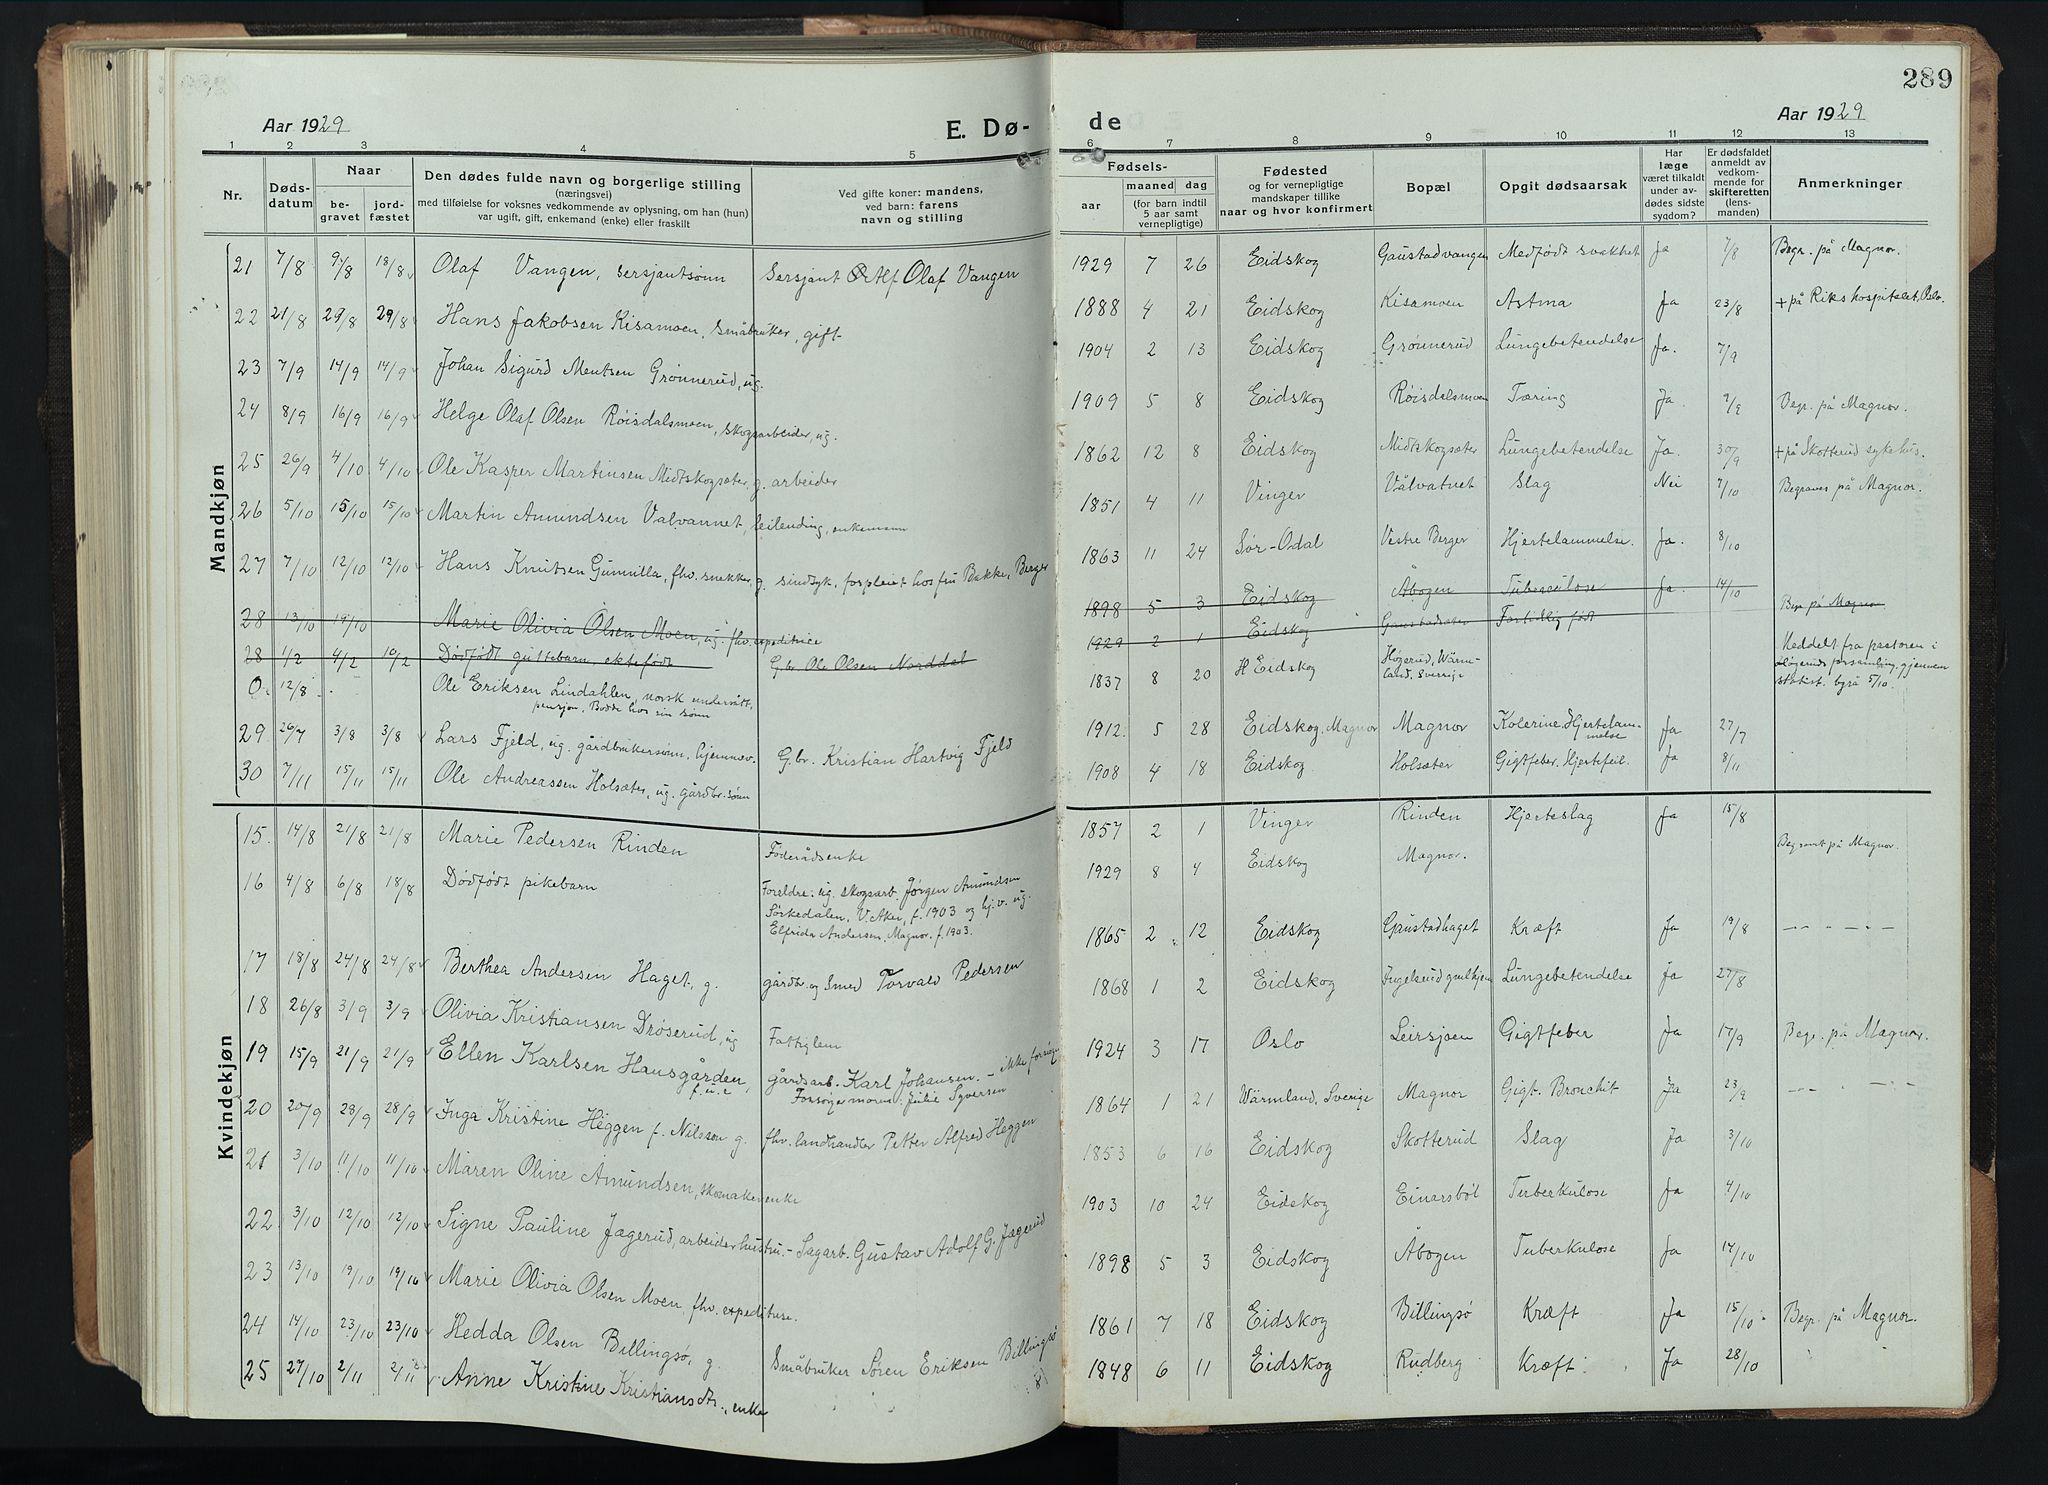 289
Aar 1929
E. Dø-
de
Aar 1929
1 2 3 4 5 6 7 8 9 10 11 12 13
Nr.
Døds-
datum
Naar
be-
gravet
jord-
fæstet
Den dødes fulde navn og borgerlige stilling
(næringsvei)
med tilføielse for voksnes vedkommende av oplysning, om han (hun)
var ugift, gift, enkemand (enke) eller fraskilt
Ved gifte koner: mandens,
ved barn: farens
navn og stilling
Fødsels-
aar
maaned
dag
(for barn indtil
5 aar samt
vernepligtige)
Fødested
og for vernepligtige
mandskaper tillike
naar og hvor konfirmert
Bopæl
Opgit dødsaarsak
Har
læge
været tilkaldt
under av-
dødes sidste
sygdom?
Er dødsfaldet
anmeldt av
vedkom-
mende for
skifteretten
(lens-
manden)
Anmerkninger
Mandkjøn
21 7/8 9/8 18/8 Olaf Vangen, sersjantsønn Sersjant Alf Olaf Vangen 1929 7 26 Eidskog Gaustadvangen Medfødt svakhet Ja 7/8 Begr. på Magnor.
22 21/8 29/8 29/8 Hans Jakobsen Kisamoen, småbruker, gift 1888 4 21 Eidskog Kisamoen Astma Ja 23/8 + på Rikshospitalet, Oslo.
23 7/9 14/9 14/9 Johan Sigurd Mentsen Grønnerud, ug. 1904 2 13 Eidskog Grønnerud Lungebetendelse Ja. 7/9
24 8/9 16/9 16/9 Helge Olaf Olsen Røisdalsmoen, skogsarbeider, ug. 1909 5 8 Eidskog Røisdalsmoen Tæring Ja. 9/9 Begr. på Magnor.
25 26/9 4/10 4/10 Ole Kasper Martinsen Midtskogsæter, g. arbeider 1862 12 8 Eidskog Midtskogsæter Lungebetendelse Ja. 30/9 + på Skotterud sykehus.
26 5/10 15/10 15/10 Martin Amundsen Valvannet, leilending, enkemann 1851 4 11 Vinger Vålvatnet Slag Nei 7/10 Begraves på Magnor.
27 7/10 12/10 12/10 Hans Knutsen Gunnilla, fhv. snekker, g. sindsyk, forpleiet hos fru Bakke, Berger 1863 11 24 Sør-Odal Vestre Berger Hjertelammelse. Ja. 8/10
28 13/10 19/10 Marie Olivia Olsen Moen, ug. fhv. expeditrice 1898 5 3 Eidskog Åbogen Tuberkulose Ja. 14/10
28 1/2 4/2 19/2 Dødfødt guttebarn, ektefødt G.br. Ole Olsen Norddal 1929 2 1 Eidskog Gaustadsæter Fortidlig født Begr. på Magnor
0. 12/8 - . Ole Eriksen Lindahlen, norsk undersått,
pensjon. Bodde hos sin sønn 1837 8 20 Eidskog Høgerud, Wärm-
land, Sverige Meddelt fra pastoren i
Högeruds forsamling, gjennem
statist. byrå 5/10.
29 26/7 3/8 3/8 Lars Fjeld, ug. gårdbrukersønn, hjemmev. G.br. Kristian Hartvig Fjeld 1912 5 28 Eidskog, Magnor Magnor Kolerine. Hjertelam-
melse Ja 27/7
30 7/11 15/11 15/11 Ole Andreassen Holsæter, ug. gårdbr. sønn 1908 4 18 Eidskog Holsæter Gigtfeber, Hjertefeil. Ja 8/11
Kvindekjøn
15. 14/8 21/8 21/8 Marie Pedersen Rinden Føderådsenke 1857 2 1 Vinger Rinden Hjerteslag Ja 15/8
16 4/8 6/8 18/8 Dødfødt pikebarn Foreldre: ug. skogsarb. Jørgen Amundsen
Sørkedalen, V. Aker, f. 1903 og hj.v. ug.
Elfrida Andersen, Magnor, f. 1903. 1929 8 4 Eidskog Magnor. Begravet på Magnor.
17 18/8 24/8 24/8 Berthea Andersen Haget, g. gårdbr. og smed Torvald Pedersen 1865 2 12 Eidskog Gaustadhaget Kræft Ja 19/8 — „ — „ —
18 26/8 3/9 3/9 Olivia Kristiansen Drøserud, ug Fattiglem 1868 1 2 Eidskog Ingelsrud gmlhjem Lungebetendelse Ja 27/8
19 15/9 21/9 21/9 Ellen Karlsen Hansgården, f.u.e gårdsarb. Karl Johansen. - ikke forsørger
Forsørger moren: Julie Syversen 1924 3 17 Oslo Leirsjøen Gigtfeber Ja 17/9 Begr. på Magnor.
20 20/9 28/9 28/9 Inga Kristine Heggen f. Nilsson g. fhv. landhandler Petter Alfred Heggen 1864 1 21 Wärmland, Sverige Magnor Gigt. Bronchit Ja 23/9 — „ — „ —
21 3/10 11/10 11/10 Maren Oline Amundsen, skomakerenke 1853 6 16 Eidskog Skotterud Slag Ja 3/10
22. 3/10 12/10 12/10 Signe Pauline Jagerud, arbeiderhustru. - Sagarb. Gustav Adolf G. Jægerud 1903 10 24 Eidskog Einarsbøl Tuberkulose Ja 4/10
23 13/10 19/10 19/10 Marie Olivia Olsen Moen, fhv. expeditrise. 1898 5 3 Eidskog Åbogen Tuberkulose Ja 14/10
24 14/10 23/10 23/10 Hedda Olsen Billingsø, g. Småbruker Søren Eriksen Billingsø 1861 7 18 Eidskog Billingsø Kræft Ja 15/10 Begr. på Magnor.
25 27/10 2/11 2/11 Anne Kristine Kristiansdtr., enke 1848 6 11 Eidskog Rudberg Kræft Ja 28/10